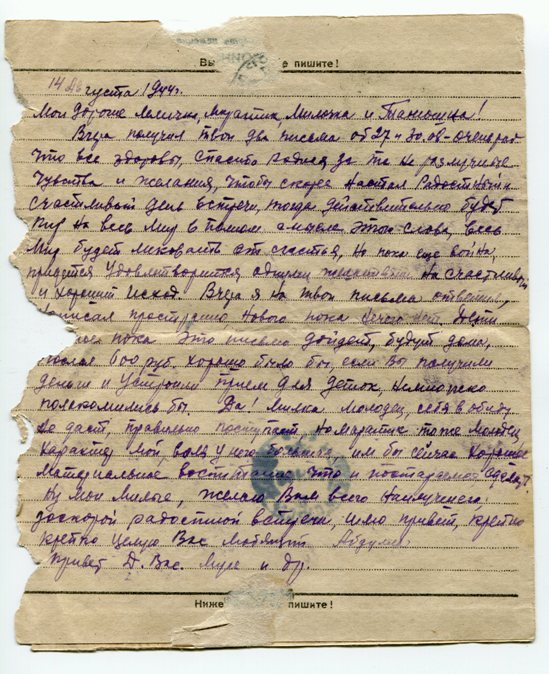 Вы не пишите!
14 Августа 1944г.
Мои дорогие Мазатик, Милочка и Танюшка!
Вчера получил твои два письма от 27 и 30.
Что все здоровы, спасибо родная за те не разлучные
чувства и желания, чтобы скорее настал радостный и
счастливый день встречи, тогда действительно будет
пир на весь мир в полном смысле этого слова, весь
мир будет ликовать от счастья, но пока еще война,
придется удовлетворится одними на счастливый
и хороший исход. Вчера я на твои письма
написал пространно нового пока нечего нет. Дети
пока это письмо дойдет, будут дома,
600 руб. хорошо было бы, если Вы получили
деньги и устроили прием для деток, немножко
полакомились бы. Да! Милка молодец, себя в обиду
не даст, правильно поступает, но Мазатик тоже молодец
характер мой, воля у него большая, им бы сейчас хорошее
материальное воспитание, что и постараемся сделать.
Ну мои милые, желаю Вам всего наилучшего
до скорой радостной встречи, шлю привет, крепко
крепко целую Вас любящий Абдулла
Привет Д. Вас. Муре и др.
Ниже пишите!